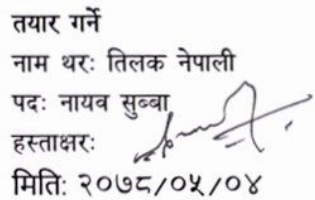 तयार गर्ने
नाम थरः तिलक नेपाली
पदः नायव सुब्बा
हस्ताक्षरः
मितिः २०७८/०५/०४